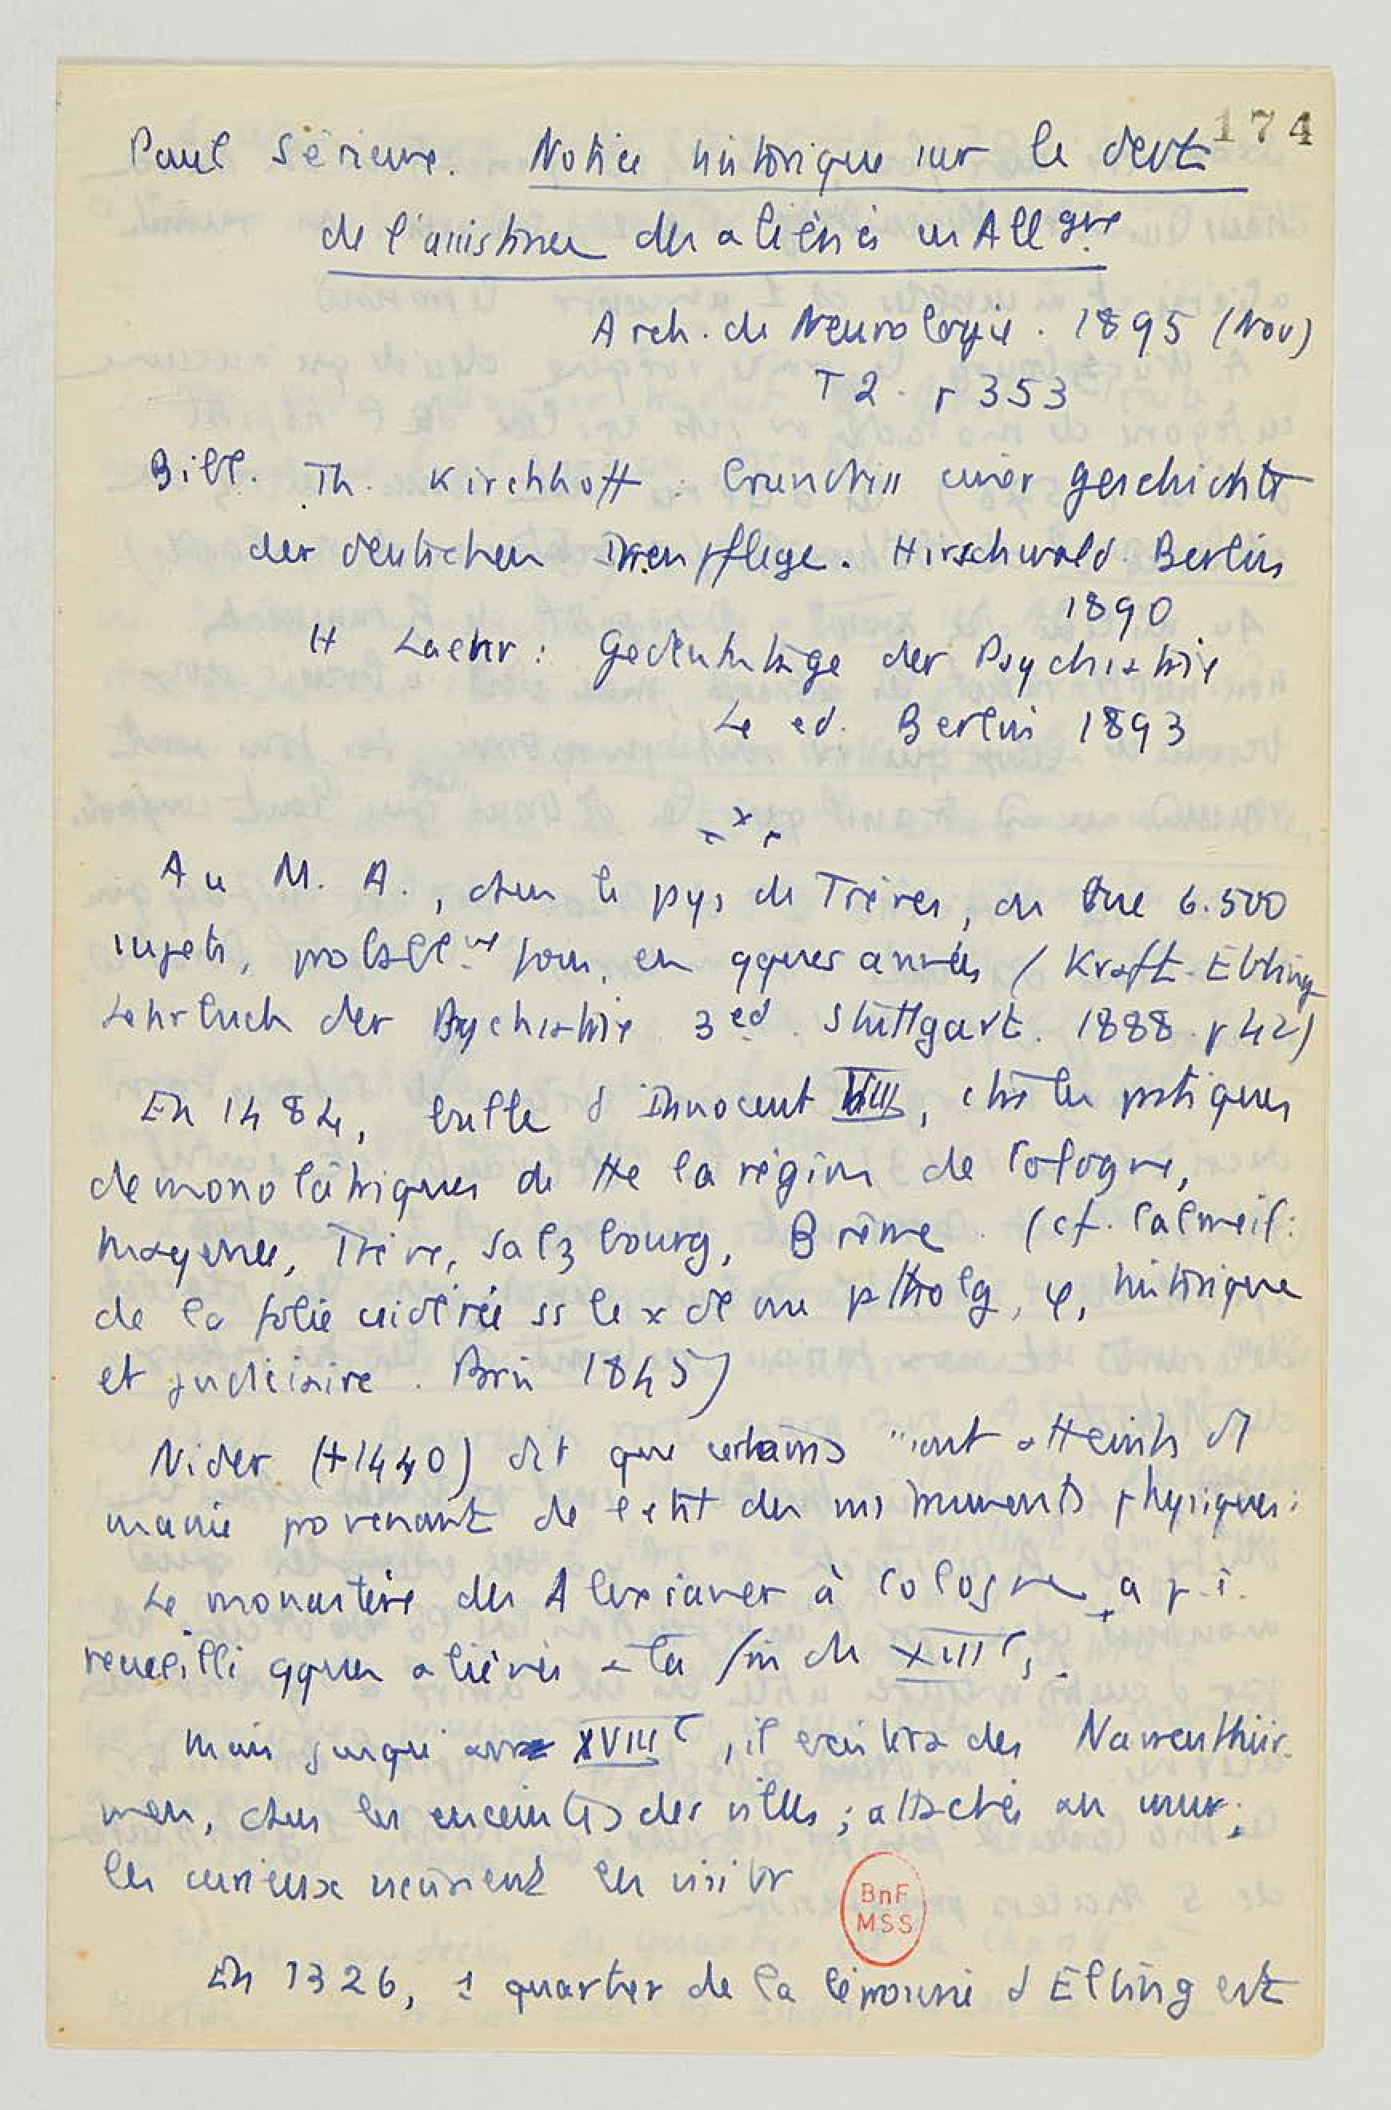 174
Paul Sérieux. Notice historique sur le devt
de l'assistance des aliénés en Allgne
Arch. de Neurologie. 1895 (Nov)
T 2. p 353
Bibl. Th. Kirchhoff : Grundriss einer geschichte
der deutschen Irrenpflege. Hirschwald. Berlin
1890
H Laehr : Gedenktage der Psychiatrie
4e ed. Berlin 1893
x x x
Au M. A., dans le pys de Trèves, on tue 6.500
sujets, probablt fous, en qques années (Kraft-Ebbing
Lehrbuch der Psychiatrie 3 ed. Stuttgart. 1888. p 42)
En 1484, bulle d'Innocent VIII, ctre les pratiques
demonolâtriques de tte la région de Cologne,
Mayence, Trève, Salzbourg, Brême. (cf. Calmeil:
de la folie cidérée ss le x de vue pthog, φ, historique
et judiciaire. Paris 1845)
Nider (+1440) dit que certains "sont atteints d
manie provenant de l'état des instruments physiques:
Le monastère des Alexianer à Cologne a p.ê.
recueilli qques aliénés à la fin du XIIIe s.
Mais jusqu'au XVIIIe, il existera des Narrenthür-
men, dans les enceintes des villes ; attachés au mur;
les curieux venaient les visiter
En 1326, 1 quartier de la léproserie d'Elbing est
BnF
MSS